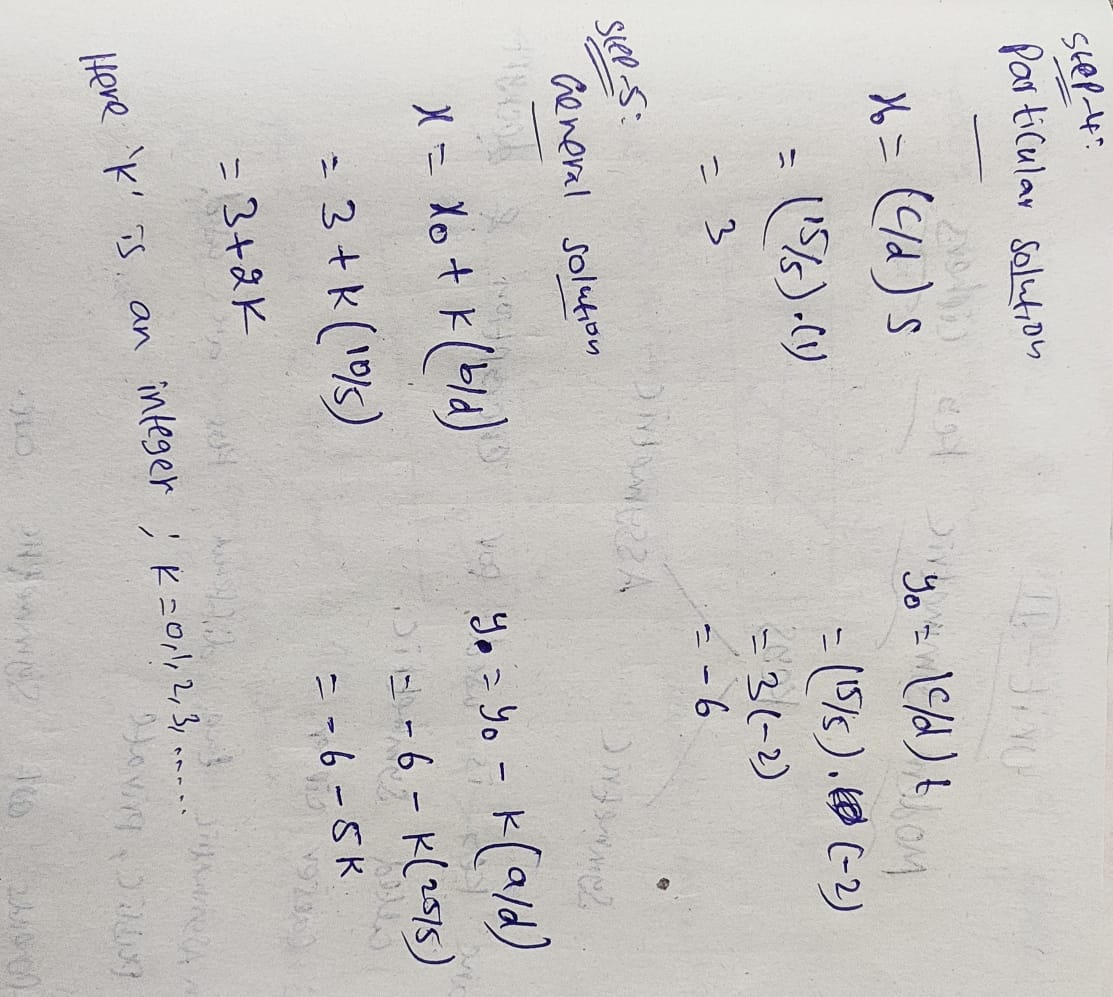 Step-4:
Particular solution
x₀ = (c/d) s
= (15/5).(1)
= 3
y₀ = (c/d) t
= (15/5). (-2)
= 3(-2)
= -6
Step-5:
General solution
x = x₀ + k(b/d)
= 3 + k(10/5)
= 3+2k
y = y₀ - k(a/d)
= -6 - k(25/5)
= -6 - 5k
Here 'k' is an integer ; k = 0,1,2,3,......